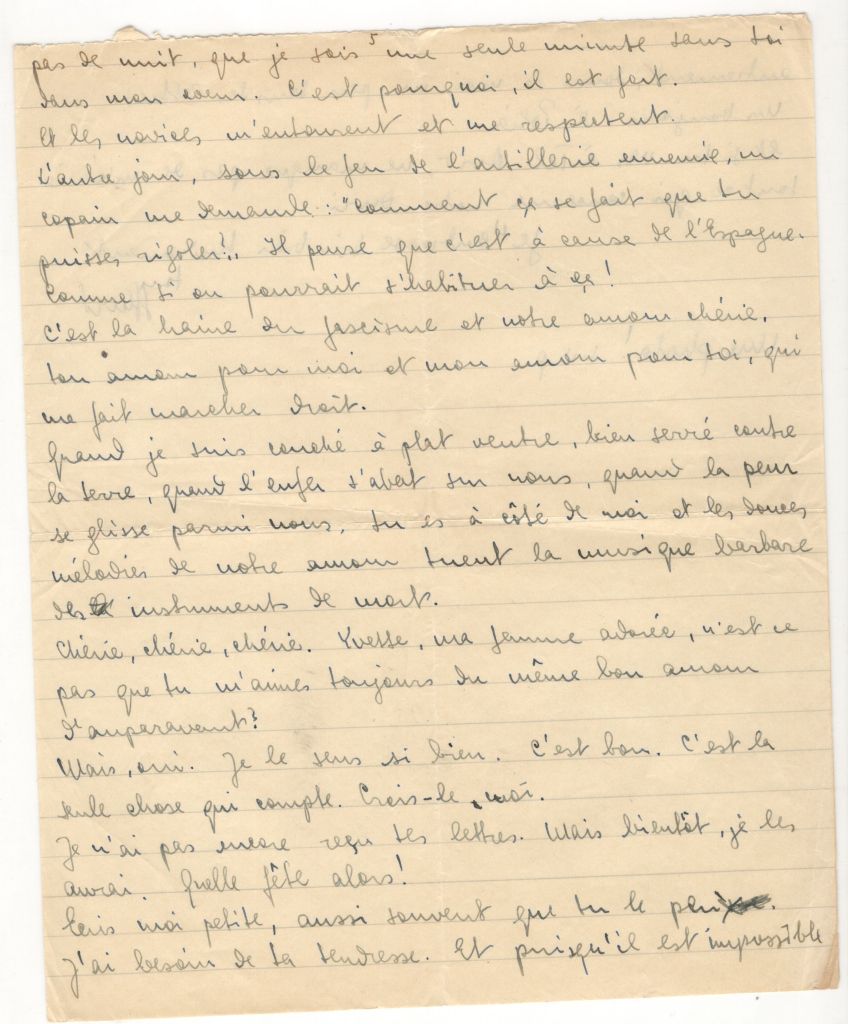 pas de nuit, que je sois une seule minute sans toi
dans mon coeur. C'est pourquoi, il est fort.
Et les novices m'entourent et me respectent.
L'autre jour, sous le feu de l'artillerie ennemie, un
copain me demande: "Comment ça se fait que tu
puisses rigoler?" Il pense que c'est à cause de l'Espagne.
Comme si on pourrait s'habituer à ça!
C'est la haine du fascisme et notre amour chérie,
ton amour pour moi et mon amour pour toi, qui
me fait marcher droit.
Quand je suis couché à plat ventre, bien serré contre
la terre, quand l'enfer s'abat sur nous, quand la peur
se glisse parmi nous, tu es à côté de moi et les douces
mélodies de notre amour tuent la musique barbare
des instruments de mort.
Chérie, chérie, chérie. Yvette, ma femme adorée, n'est ce
pas que tu m'aimes toujours du même bon amour
d'auparavant?
Mais, oui. Je le sens si bien. C'est bon. C'est la
seule chose qui compte. Crois-le moi.
Je n'ai pas encore reçu tes lettres. Mais bientôt, je les
aurai. Quelle fête alors!
Ecris moi petite, aussi souvent que tu le
J'ai besoin de ta tendresse. Et puisqu'il est impossible